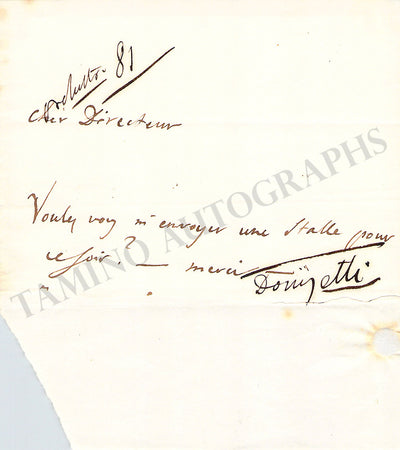 Orchestr. 81
Cher Directeur
Voulez vous m'envoyer une Stalle pour
ce soir? — merci
Donizetti
TAMINO AUTOGRAPHS